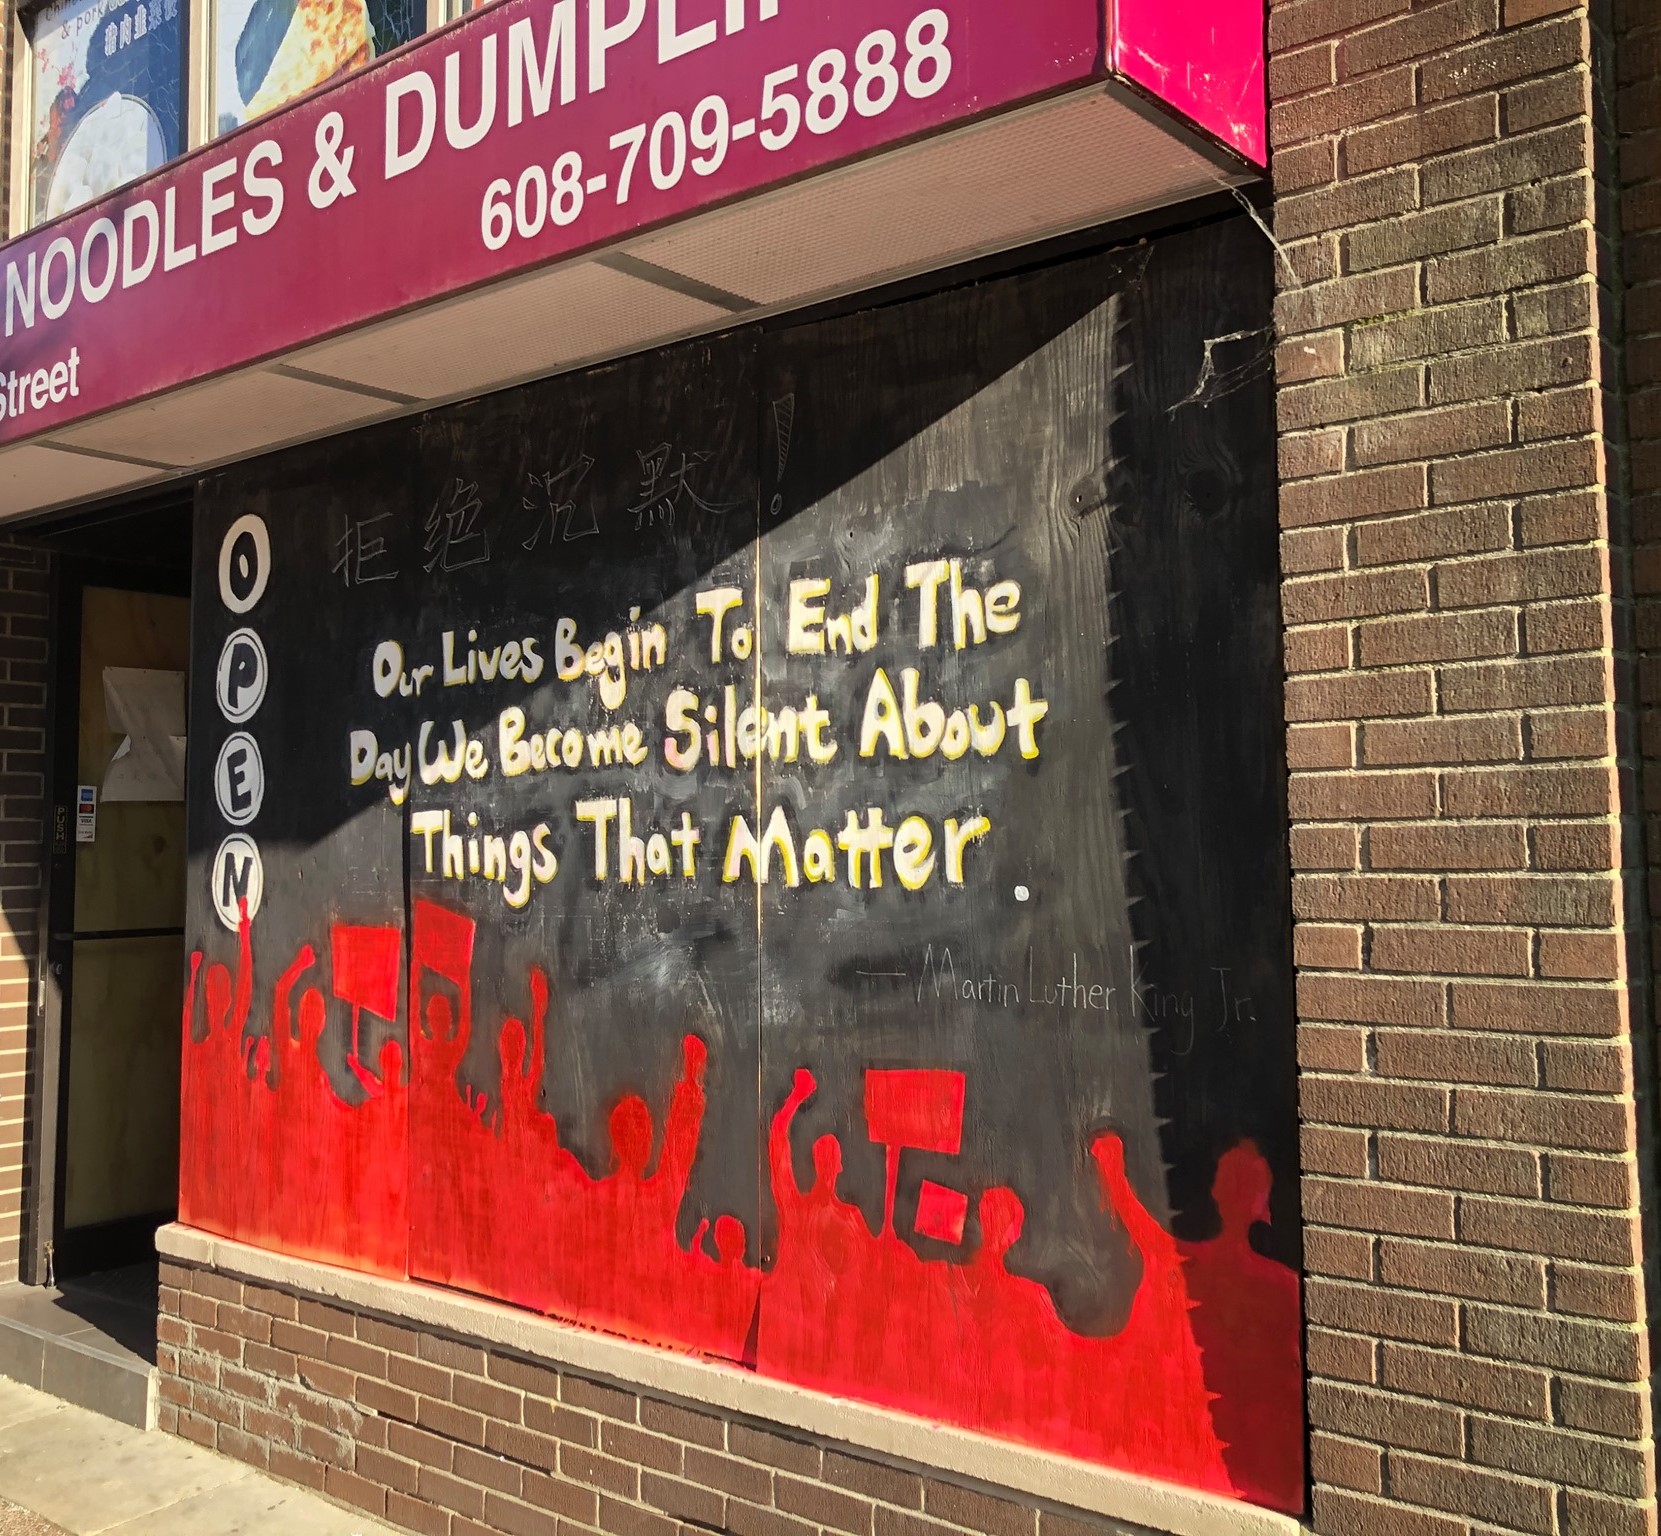 & pork
猪肉韭菜
NOODLES & DUMPLIN
608-709-5888
Street
拒绝沉默!
OPEN
Our Lives Begin To End The
Day We Become Silent About
Things That Matter.
— Martin Luther King Jr.
PUSH
VISA